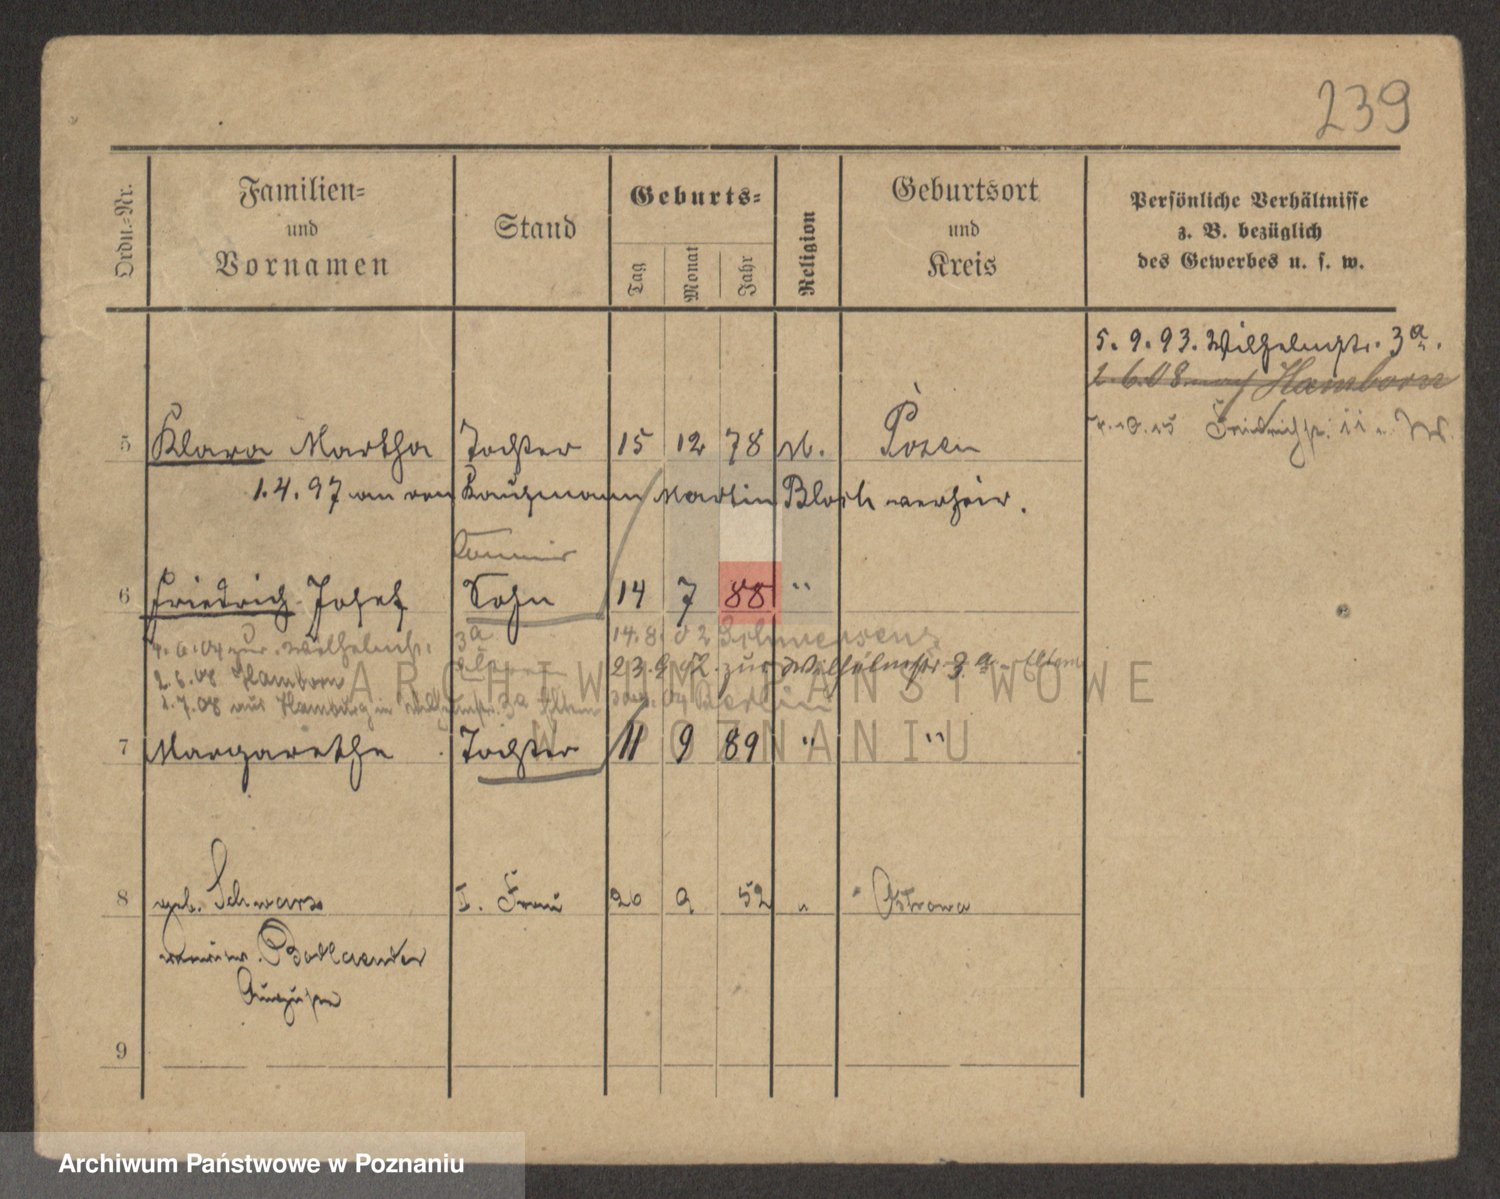 239
Ordn.=Nr.
Familien=
und
Vornamen
Stand
Geburts=
Tag
Monat
Jahr
Religion
Geburtsort
und
Kreis
Persönliche Verhältnisse
z. B. bezüglich
des Gewerbes u. s. w.
5. 9. 93. Wilhelmstr. 3a.
2.6.08 Hamborn
Friedrichstr. 11
5 Klara Martha Tochter 15 12 78 M. Posen
1.4.97 an den Kaufmann Martin Bloch verheir.
6 Friedrich Josef Sohn 14 7 88 "
zur. Wilhelmstr. 3a 14.8. 02 Schwersenz
2.6.08 Hamborn 23.9. 02 zur Wilhelmstr. 3a Eltern
1.7.08 aus Hamburg in Wilhelmstr. 3a Eltern Berlin
7 Margarethe Tochter 11 9 89 " "
8 geb. Schwarz I. Frau 20 9 52 " Ostrowo
Bodlaender
Auguste
9
ARCHIWUM PAŃSTWOWE
W POZNANIU
Archiwum Państwowe w Poznaniu